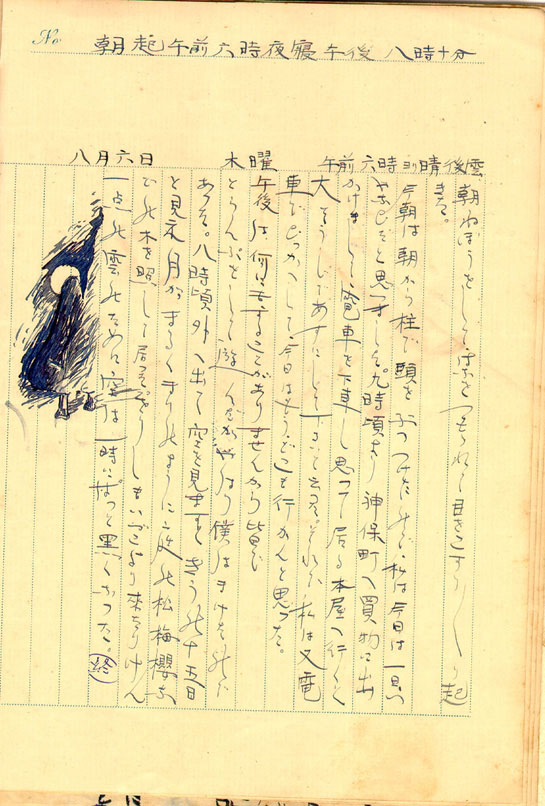 No
朝起午前六時夜寝午後八時十分
午前六時ヨリ晴後雲
木曜
八月六日
朝ねぼうをして
目をこすり 起
きた。
今朝は朝から柱で頭をぶつつけたので、私は今日は一日
だと思ひました。九時頃より神保町へ買物に出
かけまして、電車を下車し思つて居る本屋へ行くと
大そうじであすにして下さいと云つた。それから私は又電
車で 今日はもうどこも行かんと思つた。
午後は何にもすることがありませんから皆で
とらんぷをして遊んだがやはり僕はまけたので
あつた。八時頃外へ出て空を見ますと、きうの十五日
と見え月がまるくまりのように 松梅櫻な
どの木を照して居つた。 いづこより来たりけん
一点の雲のために空は一時にぱつと黒くなつた。(終)